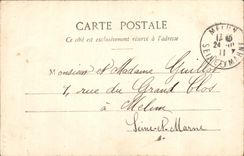 CARTE POSTALE
Ce côté est exclusivement réservé à l'adresse
MELUN
SEINE-ET-MARNE
Monsieur et Madame Guillot
7, rue du Grand Clos
à Melun
Seine-et-Marne